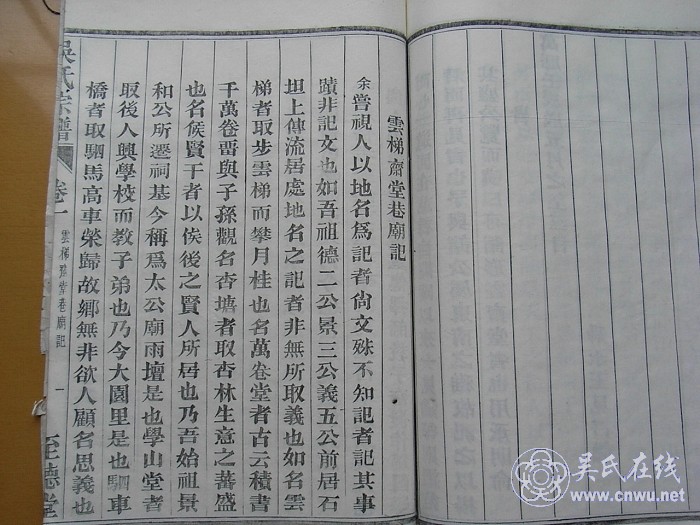 雲梯齋堂巷廟記
余嘗視人以地名爲記者尙文殊不知記者記其事
蹟非記文也如吾祖德二公景三公義五公前居石
坦上傳流居處地名之記者非無所取義也如名雲
梯者取步雲梯而攀月桂也名萬卷堂者古云積書
千萬卷畱與子孫觀名杏墻者取杏林生意之蕃盛
也名候賢干者以俟後之賢人所居也乃吾始祖景
和公所遷祠基今稱爲太公廟雨壇是也學山堂者
取後人興學校而教子弟也乃今大園里是也駟車
橋者取駟馬高車榮歸故鄉無非欲人顧名思義也
吳氏宗譜 卷一 雲梯齋堂巷廟記 一 至德堂
吴氏在线
www.cnwu.net